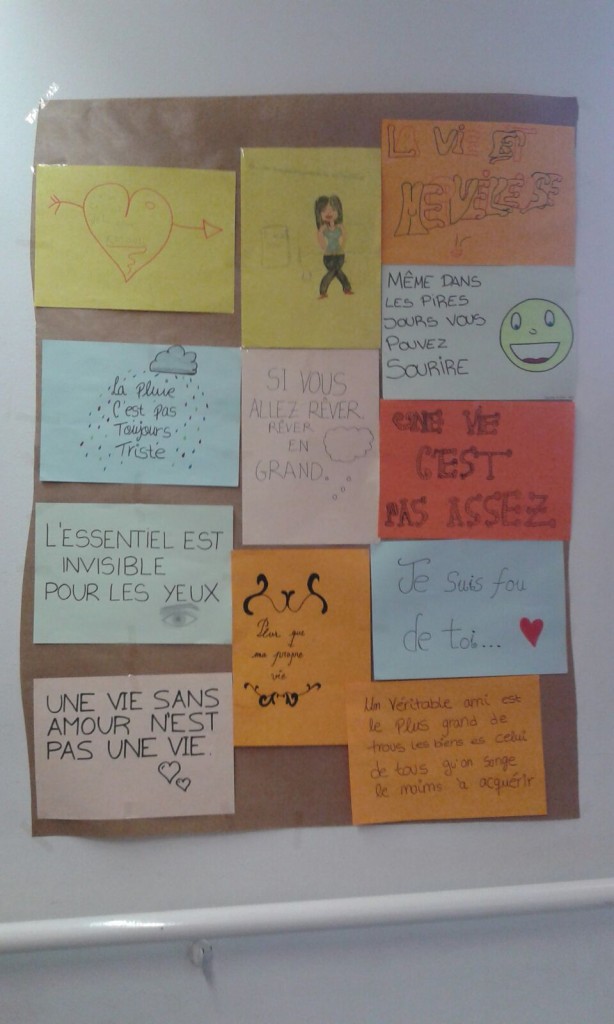 LA VIE EST
MÊME DANS
LES PIRES
JOURS VOUS
POUVEZ
SOURIRE
La Pluie
C'est pas
Toujours
Triste
SI VOUS
ALLEZ RÊVER
RÊVER
EN
GRAND.
UNE VIE
C'EST
PAS ASSEZ
L'ESSENTIEL EST
INVISIBLE
POUR LES YEUX
que
ma propre
vie
Je Suis fou
de toi...
UNE VIE SANS
AMOUR N'EST
PAS UNE VIE.
Un Véritable ami est
le Plus grand de
trous les biens es celui
de tous qu'on songe
le moins a acquérir